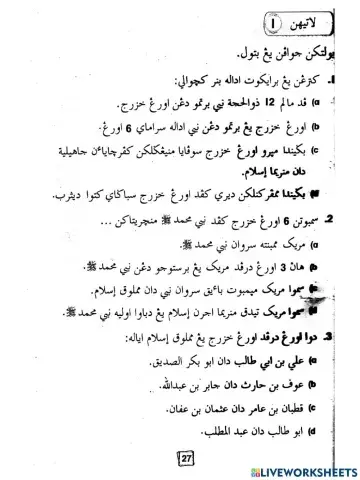 لاتيهن 1
بولتكن جواڤن يڠ بتول.
1. كترڠن يڠ برايكوت اداله بنر كچوالي:
a) ڤد مالم 12 ذوالحجة نبي برتمو دڠن اورڠ خزرج.
b) اورڠ خزرج يڠ برتمو دڠن نبي اداله سراماي 6 اورڠ.
c) بڬيندا ميرو اورڠ خزرج سوڤايا منيڠڬلكن كڤرچاياءن جاهيلية
دان منريما إسلام.
d) بڬيندا ممڤركنلكن ديري كڤد اورڠ خزرج سباڬاي كتوا ديثرب.
2. سمبوتن 6 اورڠ خزرج كڤد نبي محمد ﷺ منچريتاكن ...
a) مريك ممبنته سروان نبي محمد ﷺ.
b) هاڽ 3 اورڠ درڤد مريك يڠ برستوجو دڠن نبي محمد ﷺ.
c) سموا مريك ميمبوت باءيق سروان نبي دان مملوق إسلام.
d) سموا مريك تيدق منريما اجرن إسلام يڠ دباوا اوليه نبي محمد ﷺ.
3. دوا اورڠ درڤد اورڠ خزرج يڠ مملوق إسلام اياله:
a) علي بن ابي طالب دان ابو بكر الصديق.
b) عوف بن حارث دان جابر بن عبدالله.
c) قطبان بن عامر دان عثمان بن عفان.
d) ابو طالب دان عبد المطلب.
27
LIVEWORKSHEETS